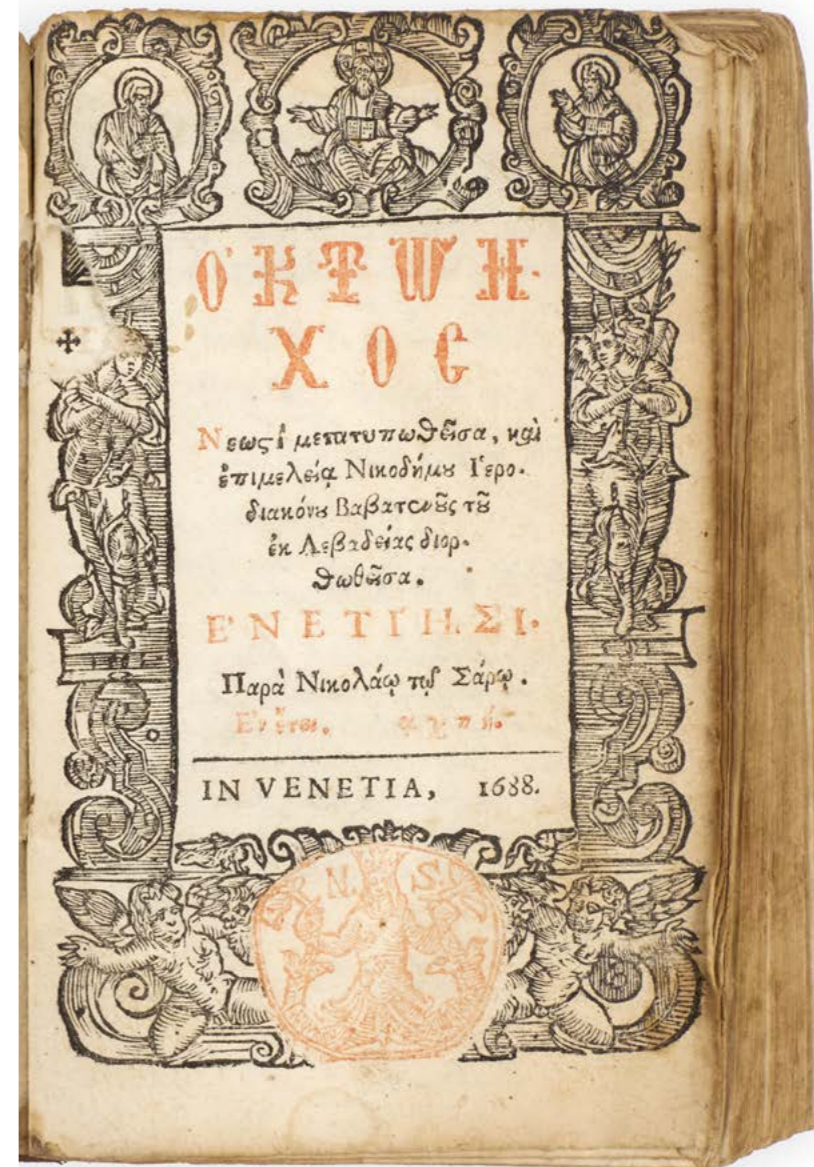 Ὀ Κ Τ Ώ Η·
Χ Ο C
Νεωςὶ μετατυπωθεῖσα, καὶ
ἐπιμελείᾳ Νικοδήμου Ἱερο-
διακόνου Βαβατενοῦς τοῦ
ἐκ Λεβαδείας διορ-
θωθεῖσα.
Ἐ Ν Ε Τ Ι Η Σ Ι·
Παρὰ Νικολάῳ τῷ Σάρῳ.
Ἐν ἔτει. αχπή.
IN VENETIA, 1688.
N. S.